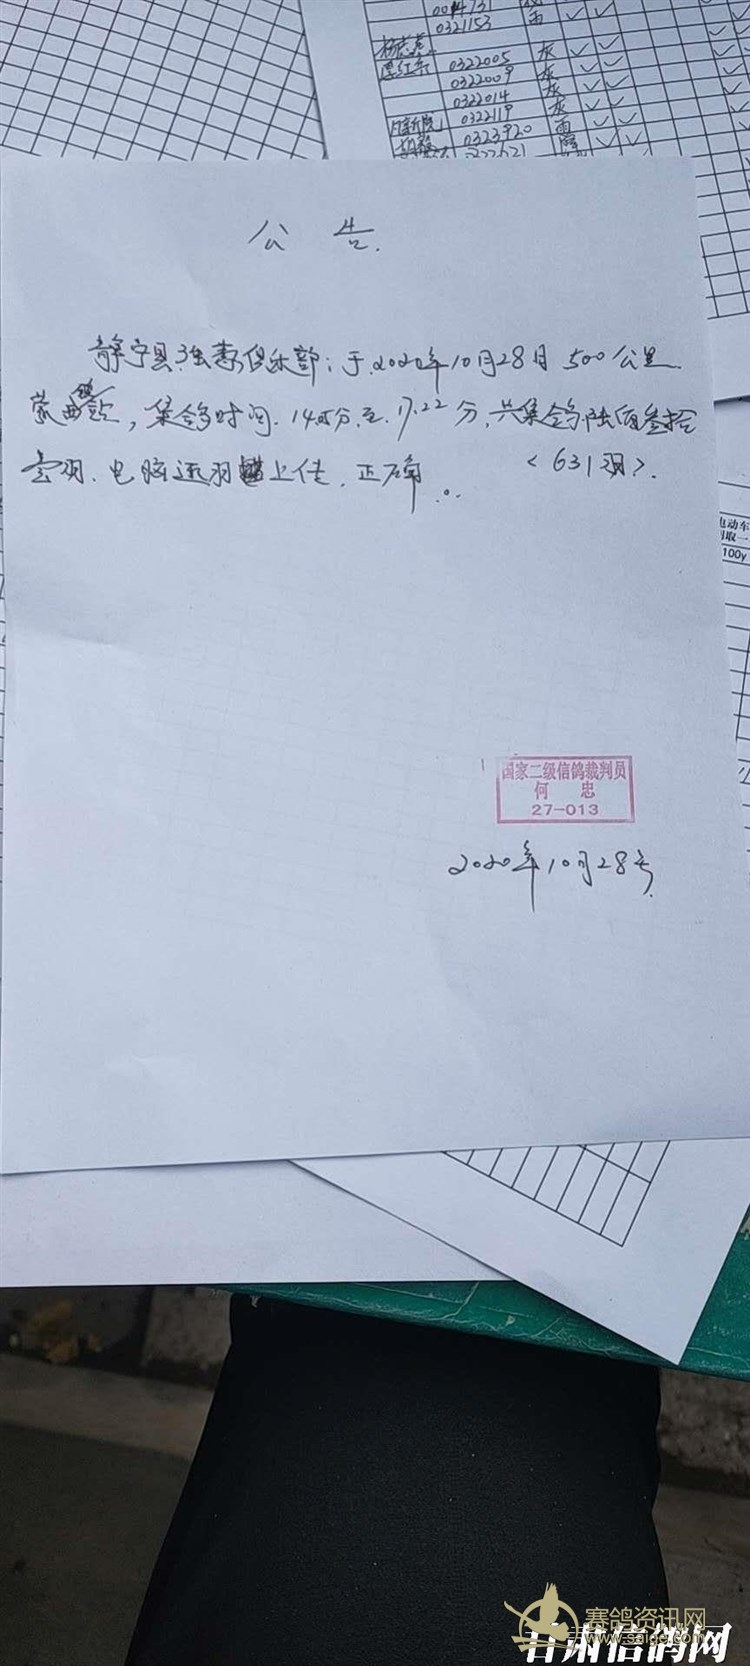 0321153
0322005 灰
0322009 灰
0322014 灰
0322119 灰
0323920 雨
公 告.
静宁县 俱乐部: 于 2020年10月28日 500公里
蒙西 , 集鸽时间. 至 17.22分, 共集鸽 陆佰叁拾
壹羽. 电脑逐羽 上传. 正确. <631羽>.
电动车
100y
国家二级信鸽裁判员
何 忠
27-013
2020年10月28号
赛鸽资讯网
www.saige.com
甘肃信鸽网